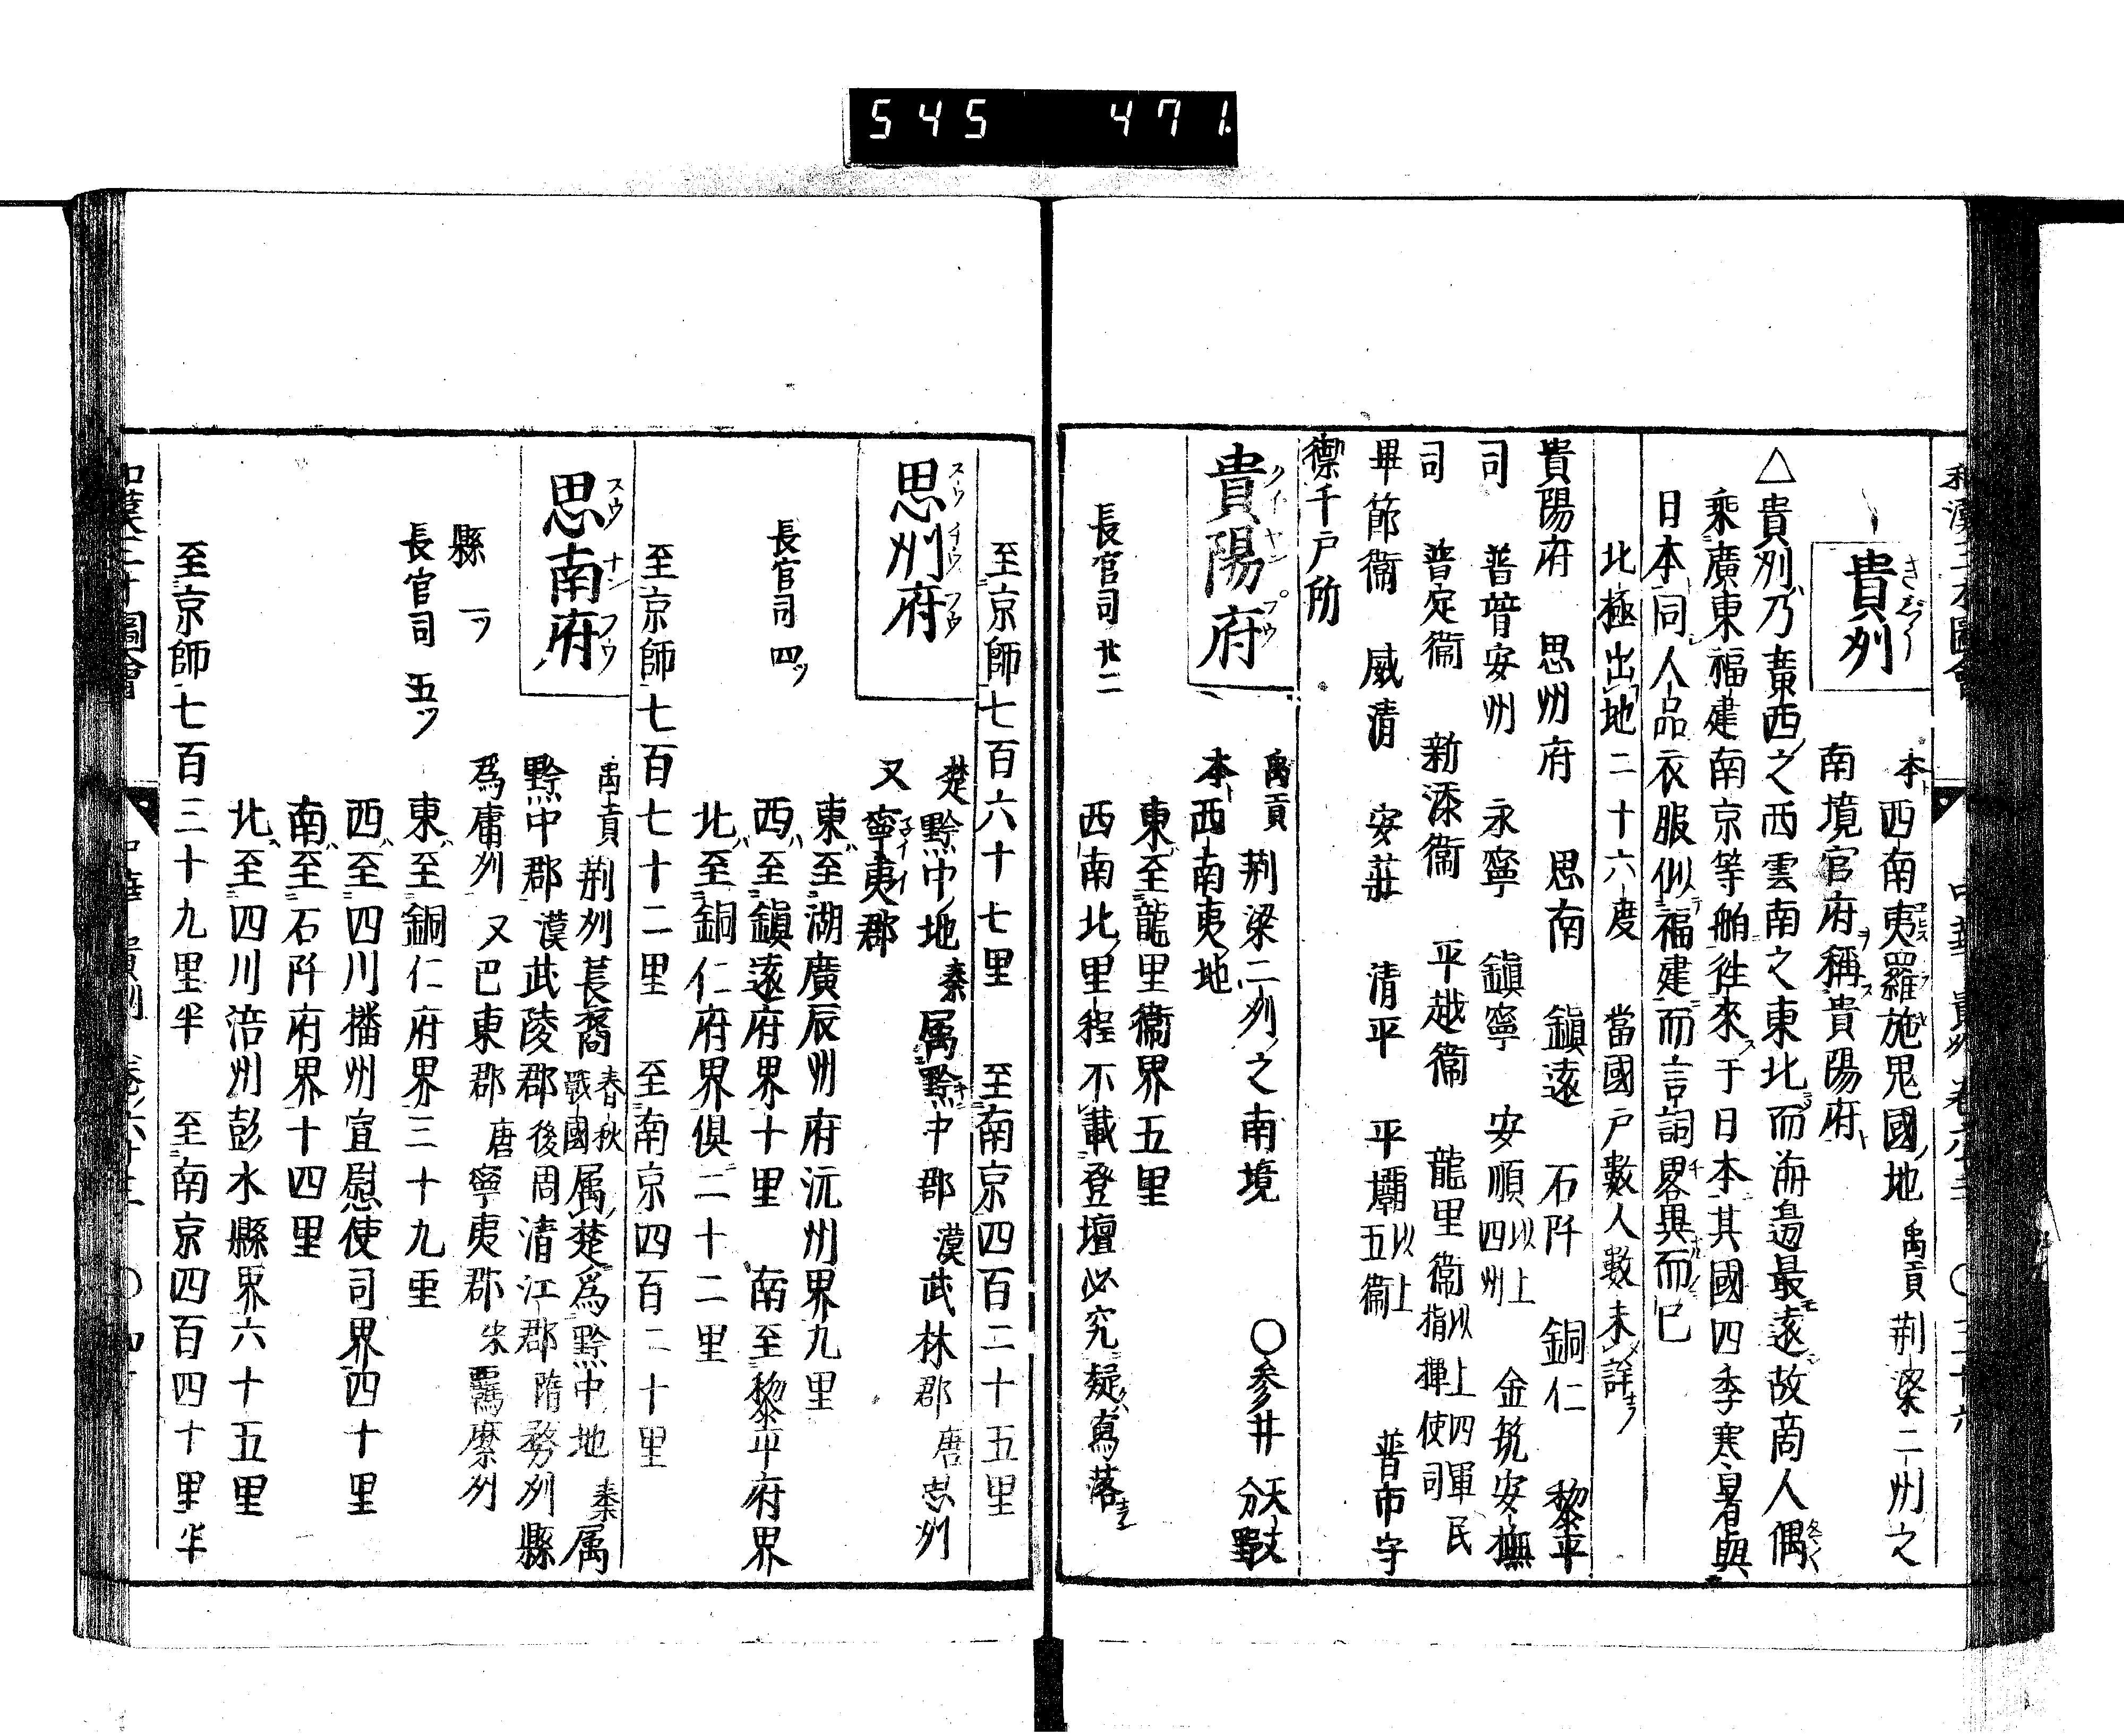 545 471
和漢三才圖會 中華 貴州 卷六十三 〇三十六
貴州 きちう
本西南夷羅施鬼國ノ地 禹貢荆梁二州之
南境官府ヲ稱ス貴陽府ト
△貴州ハ乃廣西ノ之西雲南之東北ニ〆而海邉最モ遠シ故商人偶
乘廣東福建南京等舶徃來ス于日本ニ其國四季寒暑與
日本同人品衣服似テ福建ニ而言詞畧異ナルノミ而巳
北極出地二十六度 當國戸數人數未詳ナラ
貴陽府 思州府 思南 鎮遠 石阡 銅仁 黎平
司 普普安州 永寧 鎮寧 安順以上四州 金筑安撫
司 普定衞 新添衞 平越衞 龍里衞以上四軍民指揮使司
畢節衞 威清 安莊 清平 平壩以上五衞 普市守
禦千戸所
貴陽府 クイヤンプウ
禹貢荆梁二州ノ之南境 〇參井 天文分野
本西南夷ノ地
長官司 廿二
東至龍里衞界五里
西南北ノ里程不載登壇必究疑ハ寫落
至京師七百六十七里 至南京四百二十五里
思州府 スウチウフウ
楚黔中ノ地 秦属黔中郡 漢武林郡 唐思州
又寧夷郡
長官司 四ツ
東ハ至湖廣辰州府沅州界九里
西ハ至鎮遠府界十里 南至黎平府界
北ハ至銅仁府界俱二十二里
至京師七百七十二里 至南京四百二十里
思南府 スウナンフウ
禹貢荆州荒裔 春秋戰國属ノ楚爲黔中地 秦属
黔中郡 漢武陵郡 後周清江郡 隋務州縣
爲庸州 又巴東郡 唐寧夷郡 宋覊縻州
縣 一ツ
長官司 五ツ
東ハ至銅仁府界三十九里
西ハ至四川播州宣慰使司界四十里
南ハ至石阡府界十四里
北ハ至四川涪州彭水縣界六十五里
至京師七百三十九里半 至南京四百四十里半
和漢三才圖會 中華 貴州 卷ノ六十三